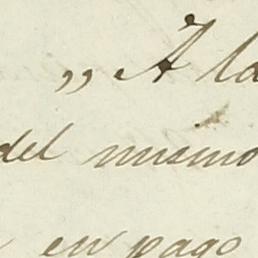 „ A la
del mismo
en pago